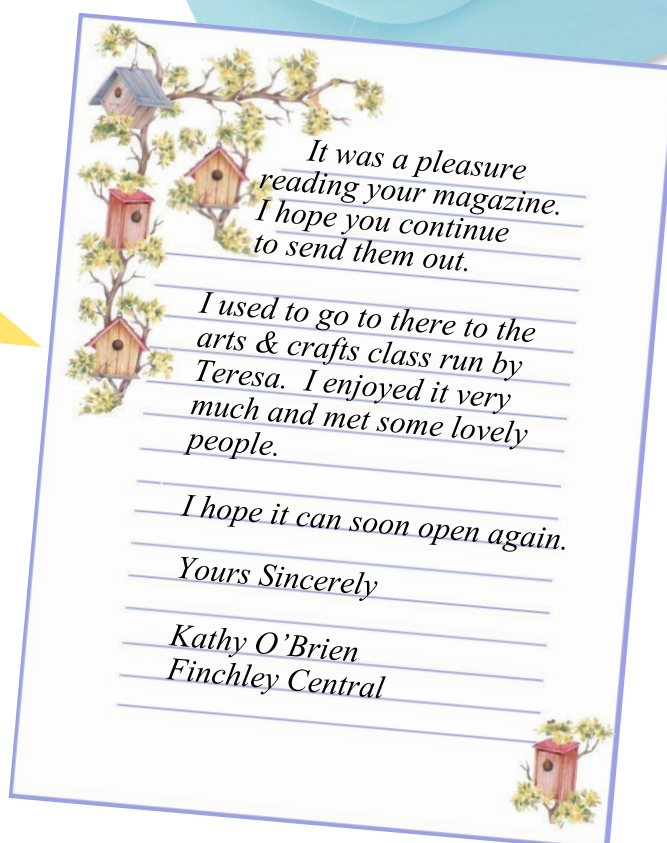 It was a pleasure
reading your magazine.
I hope you continue
to send them out.
I used to go to there to the
arts & crafts class run by
Teresa.  I enjoyed it very
much and met some lovely
people.
I hope it can soon open again.
Yours Sincerely
Kathy O’Brien
Finchley Central